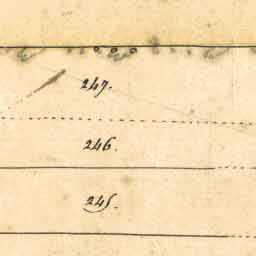 247.
246.
245.